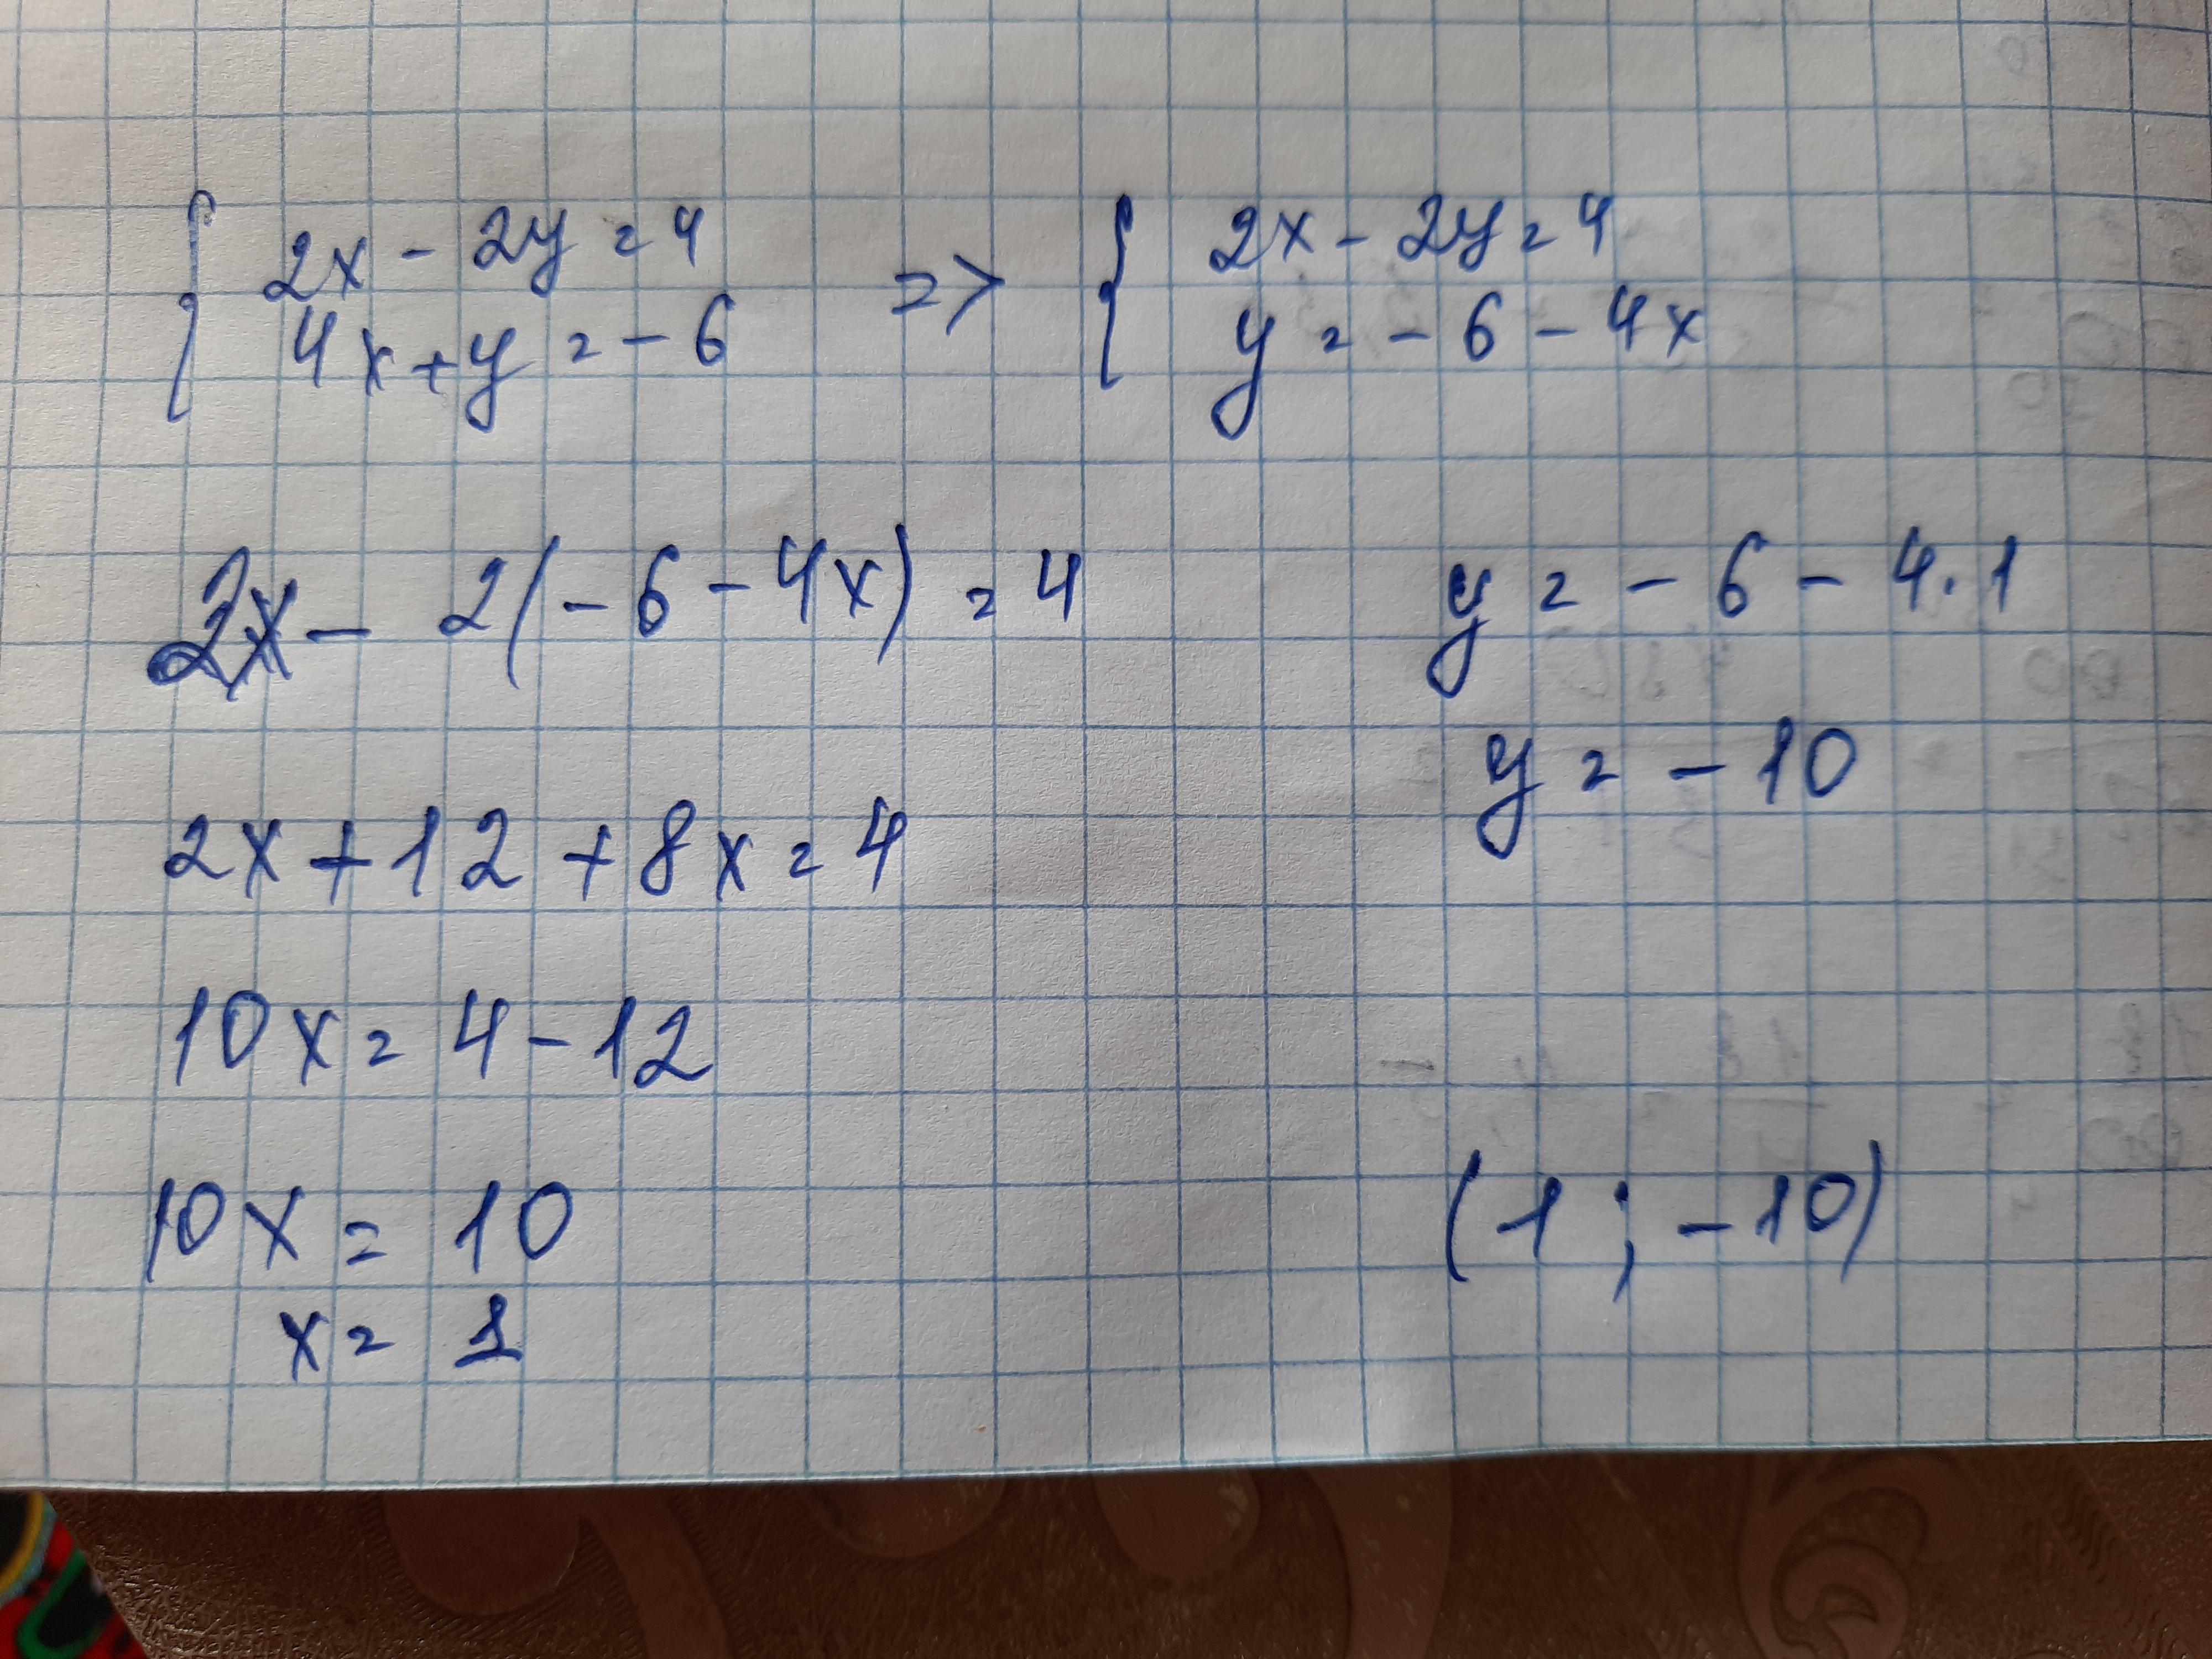 { 2x - 2y = 4
4x + y = - 6
=> { 2x - 2y = 4
y = - 6 - 4x
2x - 2(- 6 - 4x) = 4
2x + 12 + 8x = 4
10x = 4 - 12
10x = 10
x = 1
y = - 6 - 4 · 1
y = - 10
(1 ; - 10)